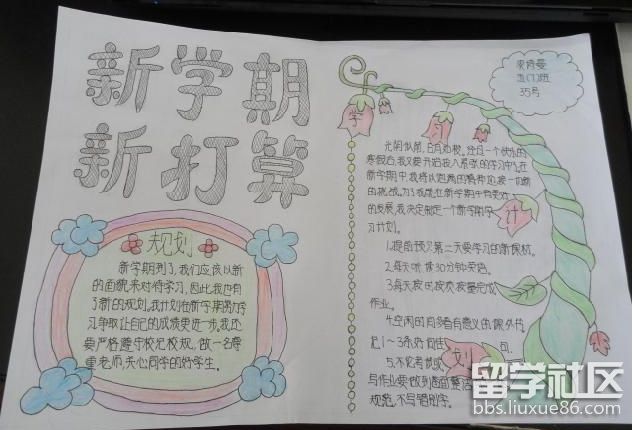 新学期
新打算
规划
新学期到了,我们应该以新
的面貌来对待学习,因此我也有
了新的规划。我计划在新学期努力学
习争取让自己的成绩更进一步,我还
要严格遵守校纪校规,做一名尊
重老师,关心同学的好学生。
五(1)班
35号
学
习
计
划
光阴似箭,日月如梭,
寒假,我又要开始投入紧张的学习中了。在
新学期中,我将以饱满的精神迎接一切新
的挑战。为了我能在新学期中有更好
的发展,我决定制定一个新学期学
习计划。
1.提前预习第二天要学习的新课材。
2.每天听读30分钟英语。
3.每天按时按质按量完成
作业。
4.空闲时间多看有意义的课外书
记1~3条好词佳句。
5.不论考试或
写作业要做到画面整洁
规范,不写错别字。
留学社区
bbs.liuxue86.com